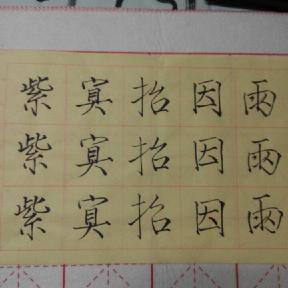 紫抬因雨
紫抬因雨
紫抬因雨